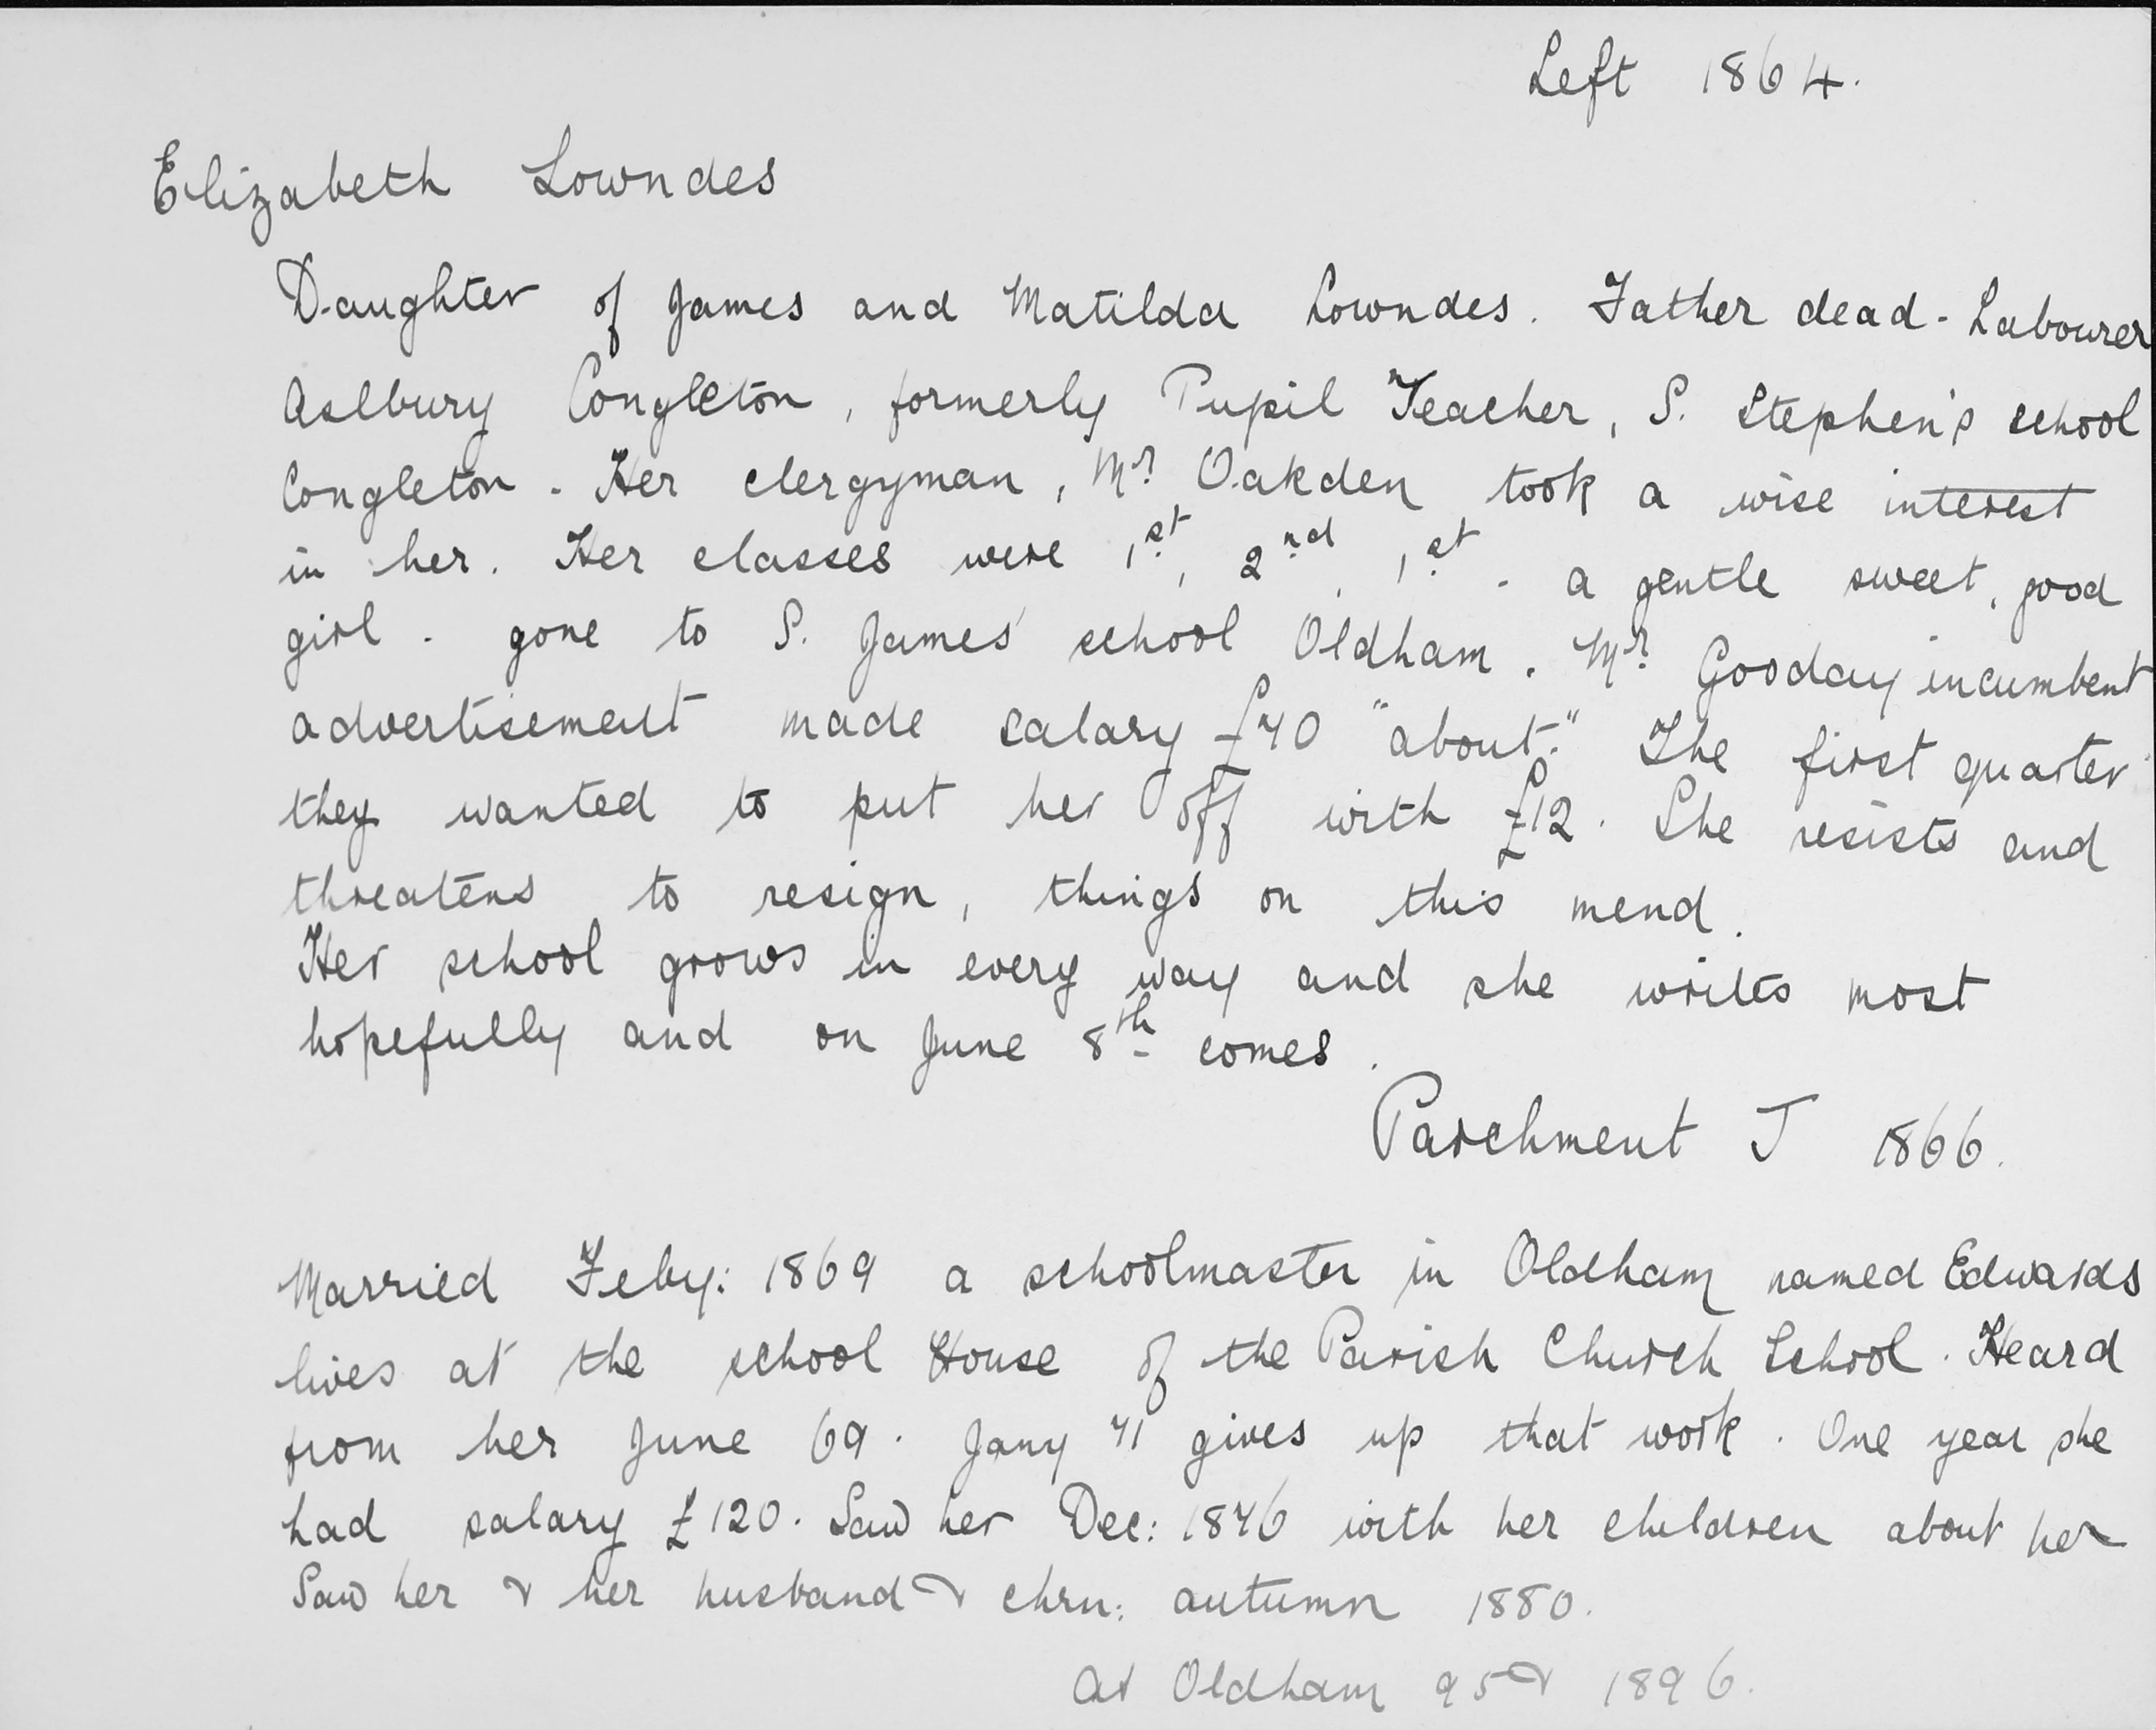 Left 1864.
Elizabeth Lowndes
Daughter of James and Matilda Lowndes. Father dead - Labourer
Astbury Congleton, formerly Pupil Teacher, S. Stephen's school
Congleton - Her clergyman, Mr. Oakden took a wise interest
in her. Her classes were 1st, 2nd, 1st - a gentle sweet, good
girl - gone to S. James' school Oldham. Mr. Gooday incumbent
advertisement made salary £70 "about." The first quarter
they wanted to put her off with £12. She resists and
threatens to resign, things on this mend.
Her school grows in every way and she writes most
hopefully and on June 8th comes.
Parchment J 1866.
Married Feby: 1869 a schoolmaster in Oldham named Edwards
lives at the school House of the Parish Church School. Heard
from her June 69. Jany 71 gives up that work. One year she
had salary £120. Saw her Dec: 1876 with her children about her
Saw her & her husband & chrn: autumn 1880.
At Oldham 95 & 1896.